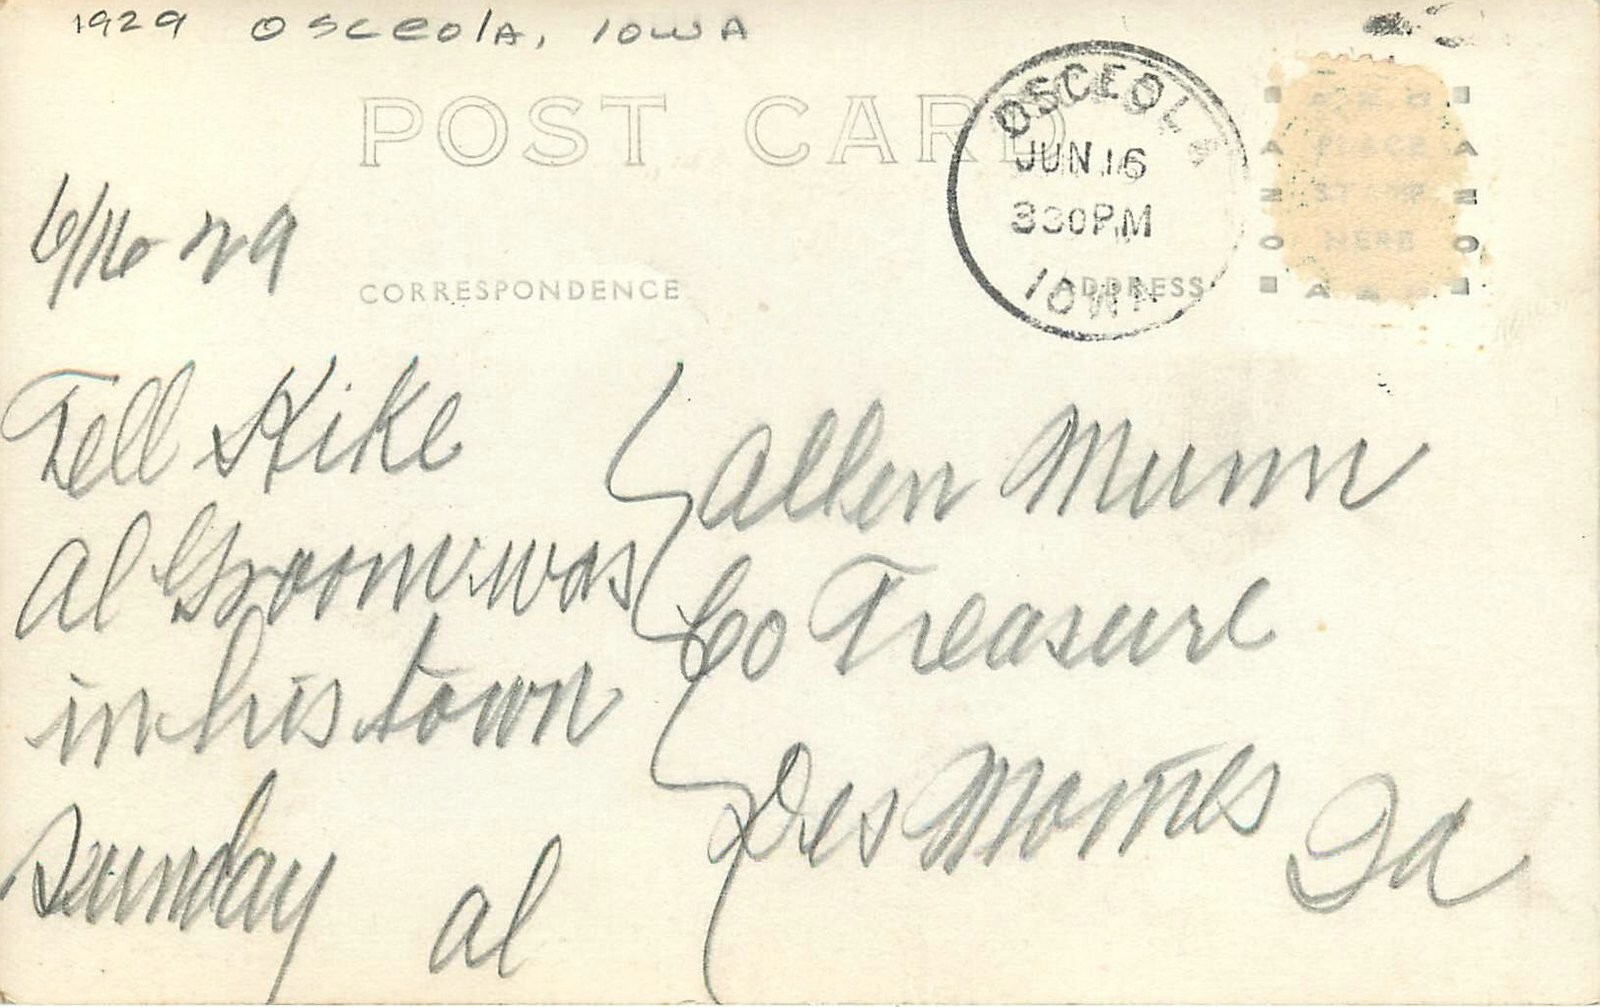 1929 OSCEOLA, IOWA
POST CARD
OSCEOLA
JUN 16
330PM
IOWA
PLACE
STAMP
HERE
6/16 29
CORRESPONDENCE
ADDRESS
Tell Kike
Al Groom was
in his town
Sunday
Al
Allen Munn
Co Treasure
Des Moines Ia